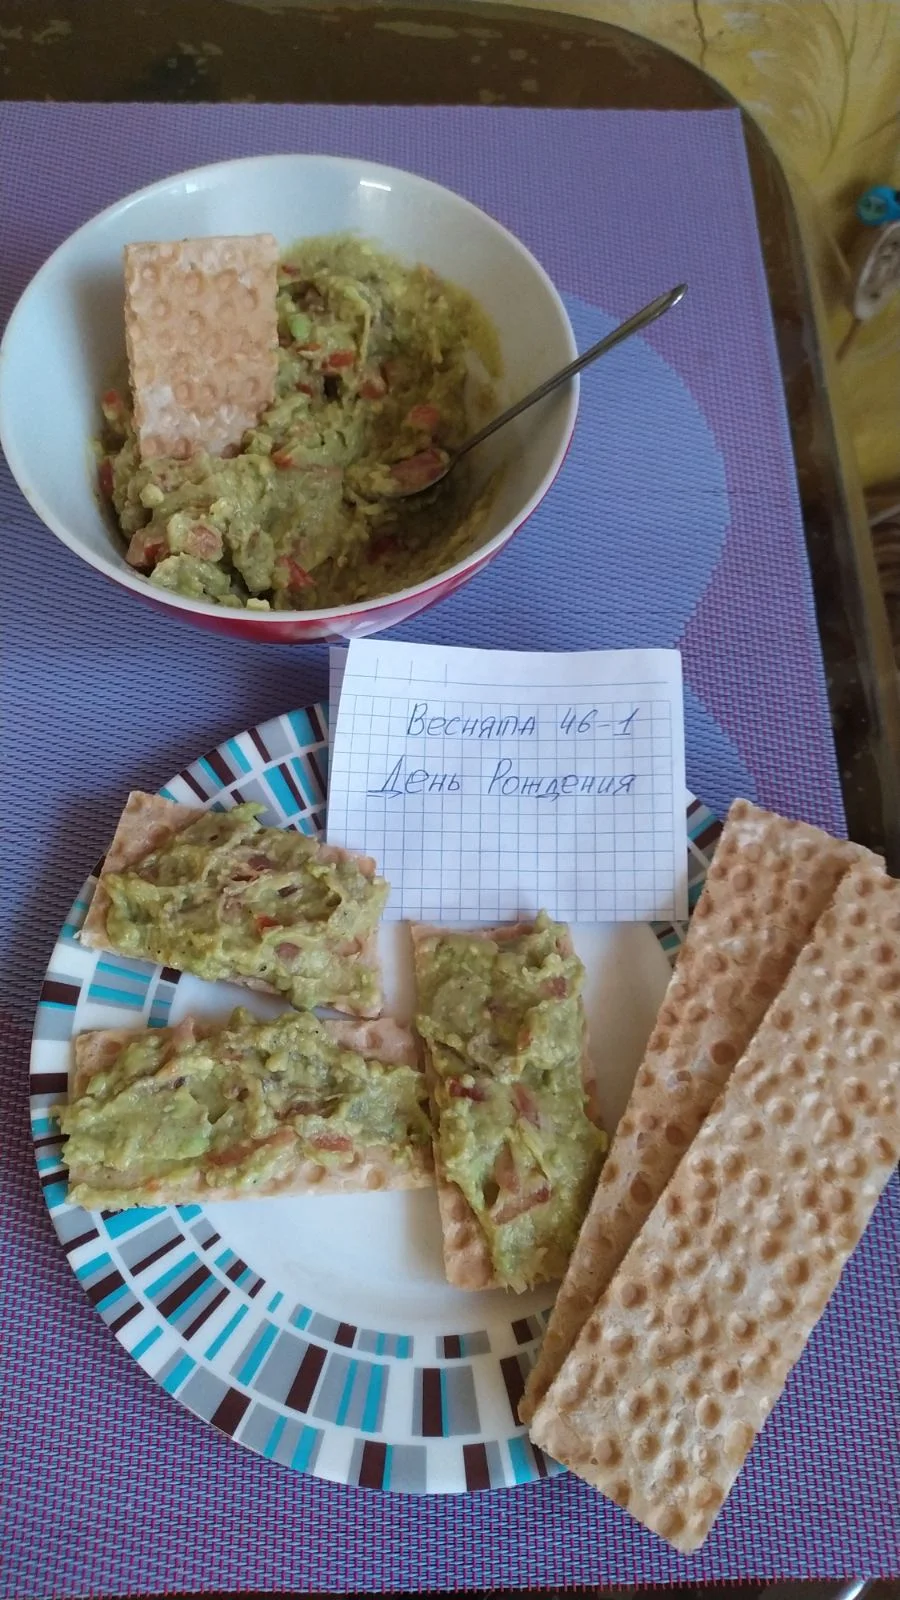 Веснята 46-1
День Рождения